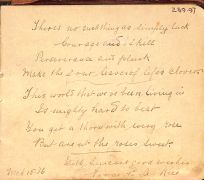 289-97
There's no such thing as simply luck
Courage and skill
Perseverance and pluck
Make the four leaves of life's clover
This world that we're living in
Is mighty hard to beat
You get a thorn with every rose
But aren't the roses sweet
With sincere good wishes